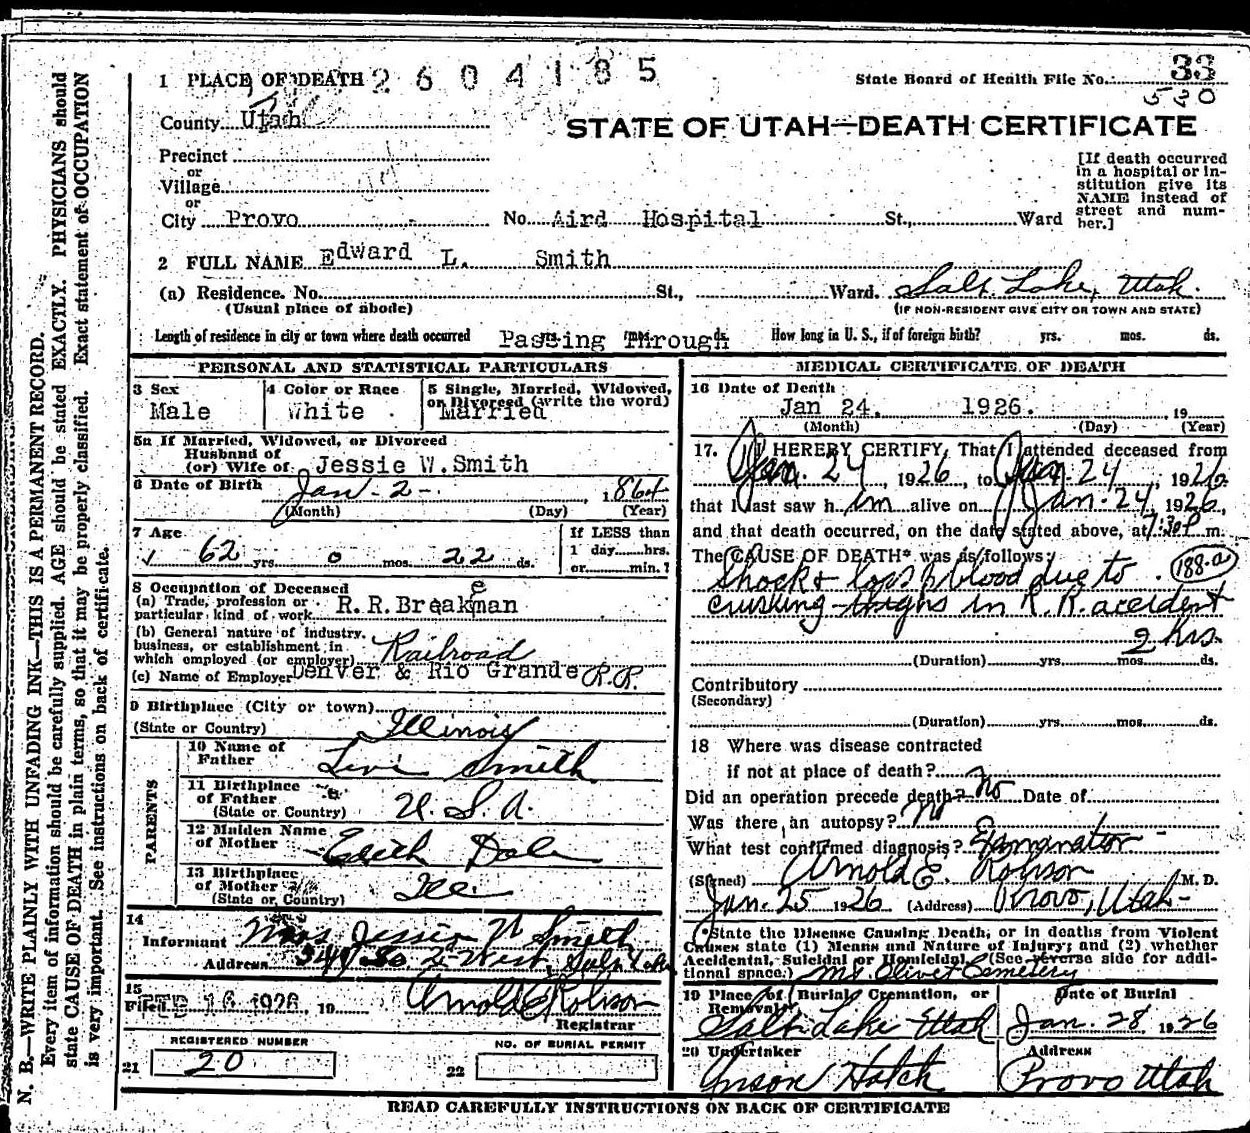 N. B.—WRITE PLAINLY WITH UNFADING INK—THIS IS A PERMANENT RECORD.
Every item of information should be carefully supplied. AGE should be stated EXACTLY. PHYSICIANS should
state CAUSE OF DEATH in plain terms, so that it may be properly classified. Exact statement of OCCUPATION
is very important. See instructions on back of certificate.
1 PLACE OF DEATH 2604185
State Board of Health File No. 33
520
County Utah
STATE OF UTAH—DEATH CERTIFICATE
Precinct
or
Village
or
City Provo No. Aird Hospital St., Ward
[If death occurred
in a hospital or in-
stitution give its
NAME instead of
street and num-
ber.]
2 FULL NAME Edward L. Smith
(a) Residence. No. St., Ward. Salt Lake, Utah.
(Usual place of abode) (IF NON-RESIDENT GIVE CITY OR TOWN AND STATE)
Length of residence in city or town where death occurred Passing Through yrs. mos. ds. How long in U. S., if of foreign birth? yrs. mos. ds.
PERSONAL AND STATISTICAL PARTICULARS
3 Sex
Male
4 Color or Race
White
5 Single, Married, Widowed,
or Divorced (write the word)
Married
5a If Married, Widowed, or Divorced
Husband of
(or) Wife of Jessie W. Smith
6 Date of Birth Jan. 2 - , 1864
(Month) (Day) (Year)
7 Age
62 yrs. 0 mos. 22 ds.
If LESS than
1 day......hrs.
or......min.?
8 Occupation of Deceased
(a) Trade, profession or
particular kind of work R.R.Breakeman
(b) General nature of industry.
business, or establishment in
which employed (or employer) Railroad
(c) Name of Employer Denver & Rio Grande R.R.
9 Birthplace (City or town)
(State or Country) Illinois
PARENTS
10 Name of
Father Levi Smith
11 Birthplace
of Father
(State or Country) U. S. A.
12 Maiden Name
of Mother Edith Dale
13 Birthplace
of Mother
(State or Country) Ill
14
Informant Mrs Jessie W Smith
Address 549 So 2 West, Salt Lake
15
Filed FEB 16 1926, 19 Arnold E Robison
Registrar
REGISTERED NUMBER
21 20
NO. OF BURIAL PERMIT
22
MEDICAL CERTIFICATE OF DEATH
16 Date of Death
Jan 24. 1926. , 19
(Month) (Day) (Year)
17. I HEREBY CERTIFY, That I attended deceased from
Jan. 24, 1926, to Jan. 24, 1926
that I last saw h im alive on Jan. 24, 1926,
and that death occurred, on the date stated above, at 7:30P m.
The CAUSE OF DEATH* was as follows:
Shock & loss of blood due to 188-a
crushing thighs in R. R. accident
2 hrs.
(Duration) yrs. mos. ds.
Contributory
(Secondary)
(Duration) yrs. mos. ds.
18 Where was disease contracted
if not at place of death?
Did an operation precede death? no Date of
Was there an autopsy? no
What test confirmed diagnosis? Examination
(Signed) Arnold E. Robison M. D.
Jan. 25 1926 (Address) Provo, Utah-
*State the Disease Causing Death, or in deaths from Violent
Causes state (1) Means and Nature of Injury; and (2) whether
Accidental, Suicidal or Homicidal. (See reverse side for addi-
tional space.) Mt. Olivet Cemetery
19 Place of Burial, Cremation, or
Removal
Salt Lake Utah
Date of Burial
Jan. 28 1926
20 Undertaker
Anson Hatch
Address
Provo Utah
READ CAREFULLY INSTRUCTIONS ON BACK OF CERTIFICATE